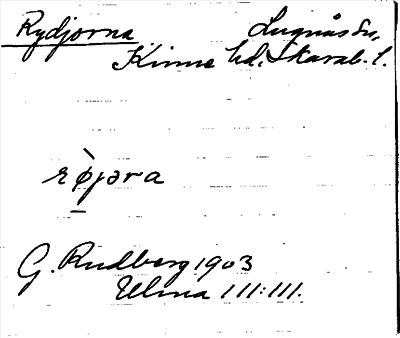 Rydjorna Lugnås sn,
Kinne hd, Skarab. l.
rø̀jəra
G. Rudberg 1903
Ulma 111:111.